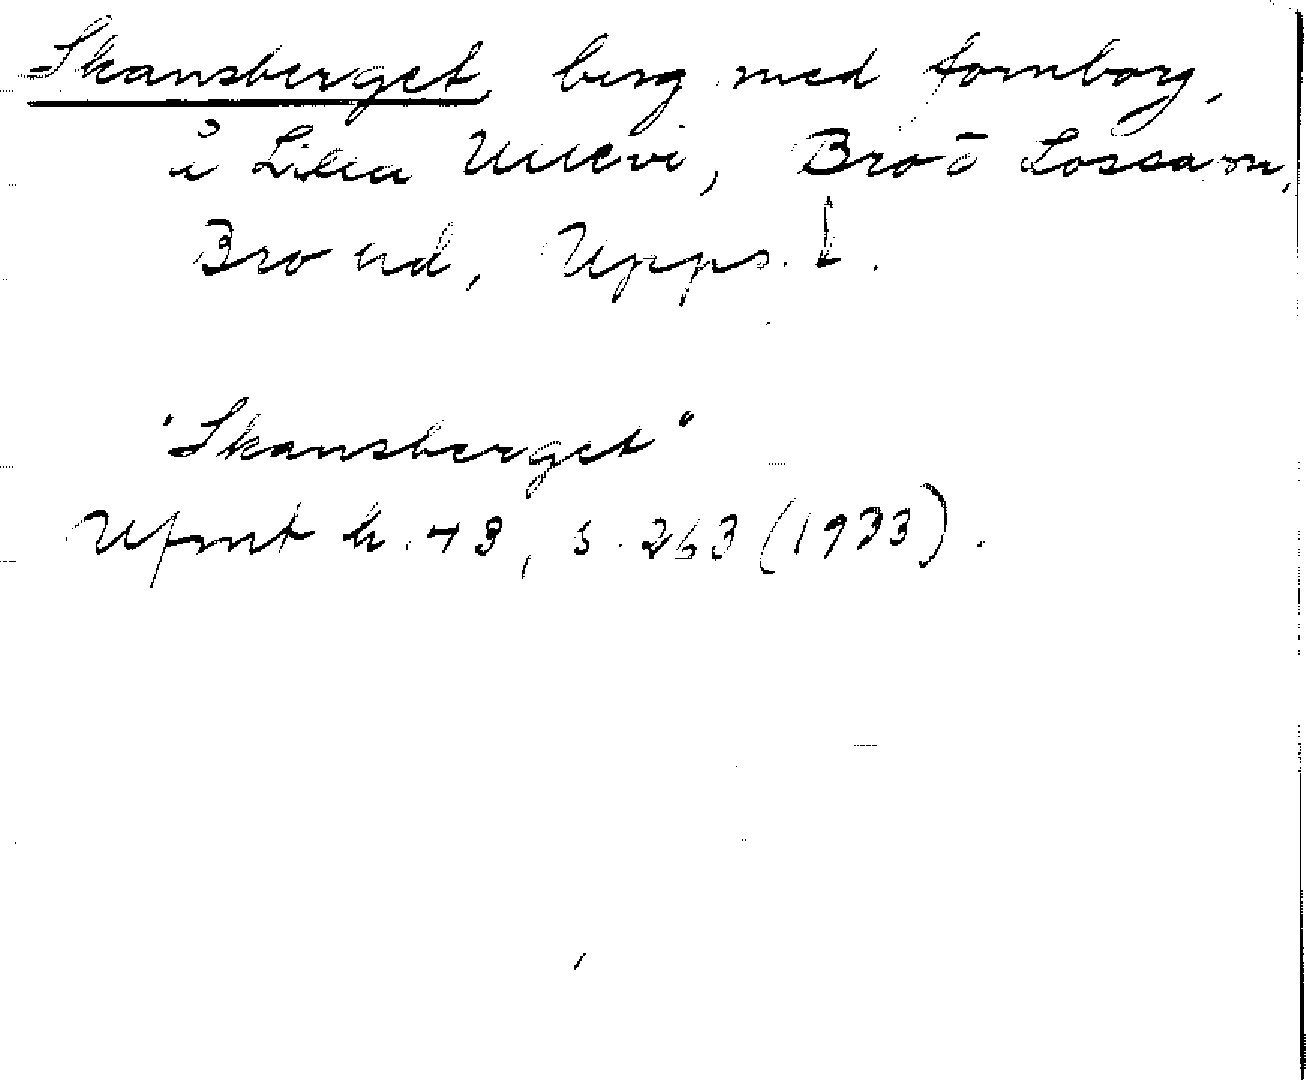 Skansberget, berg med fornborg,
i Lilla Ullevi, Bro o Lossa sn,
Bro hd, Upps. l.
"Skansberget"
Ufmt h. 43, s. 263 (1933).